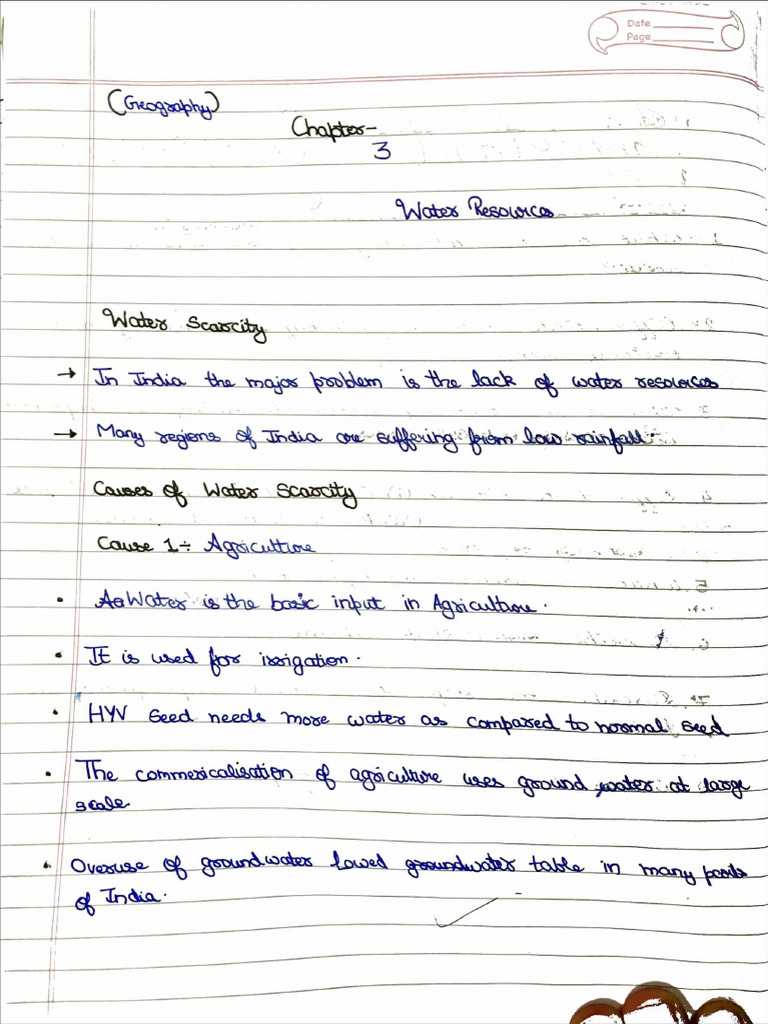 Date
Page
(Geography)
Chapter-
3
Water Resources
Water Scarcity
→ In India the major problem is the lack of water resources
→ Many regions of India are suffering from low rainfall.
Causes of Water Scarcity
Cause 1÷ Agriculture
• Water is the basic input in Agriculture.
• It is used for irrigation.
• HYV seed needs more water as compared to normal seed
• The commericalisation of agriculture uses ground water at large
scale
• Overuse of groundwater lowed groundwater table in many parts
of India.